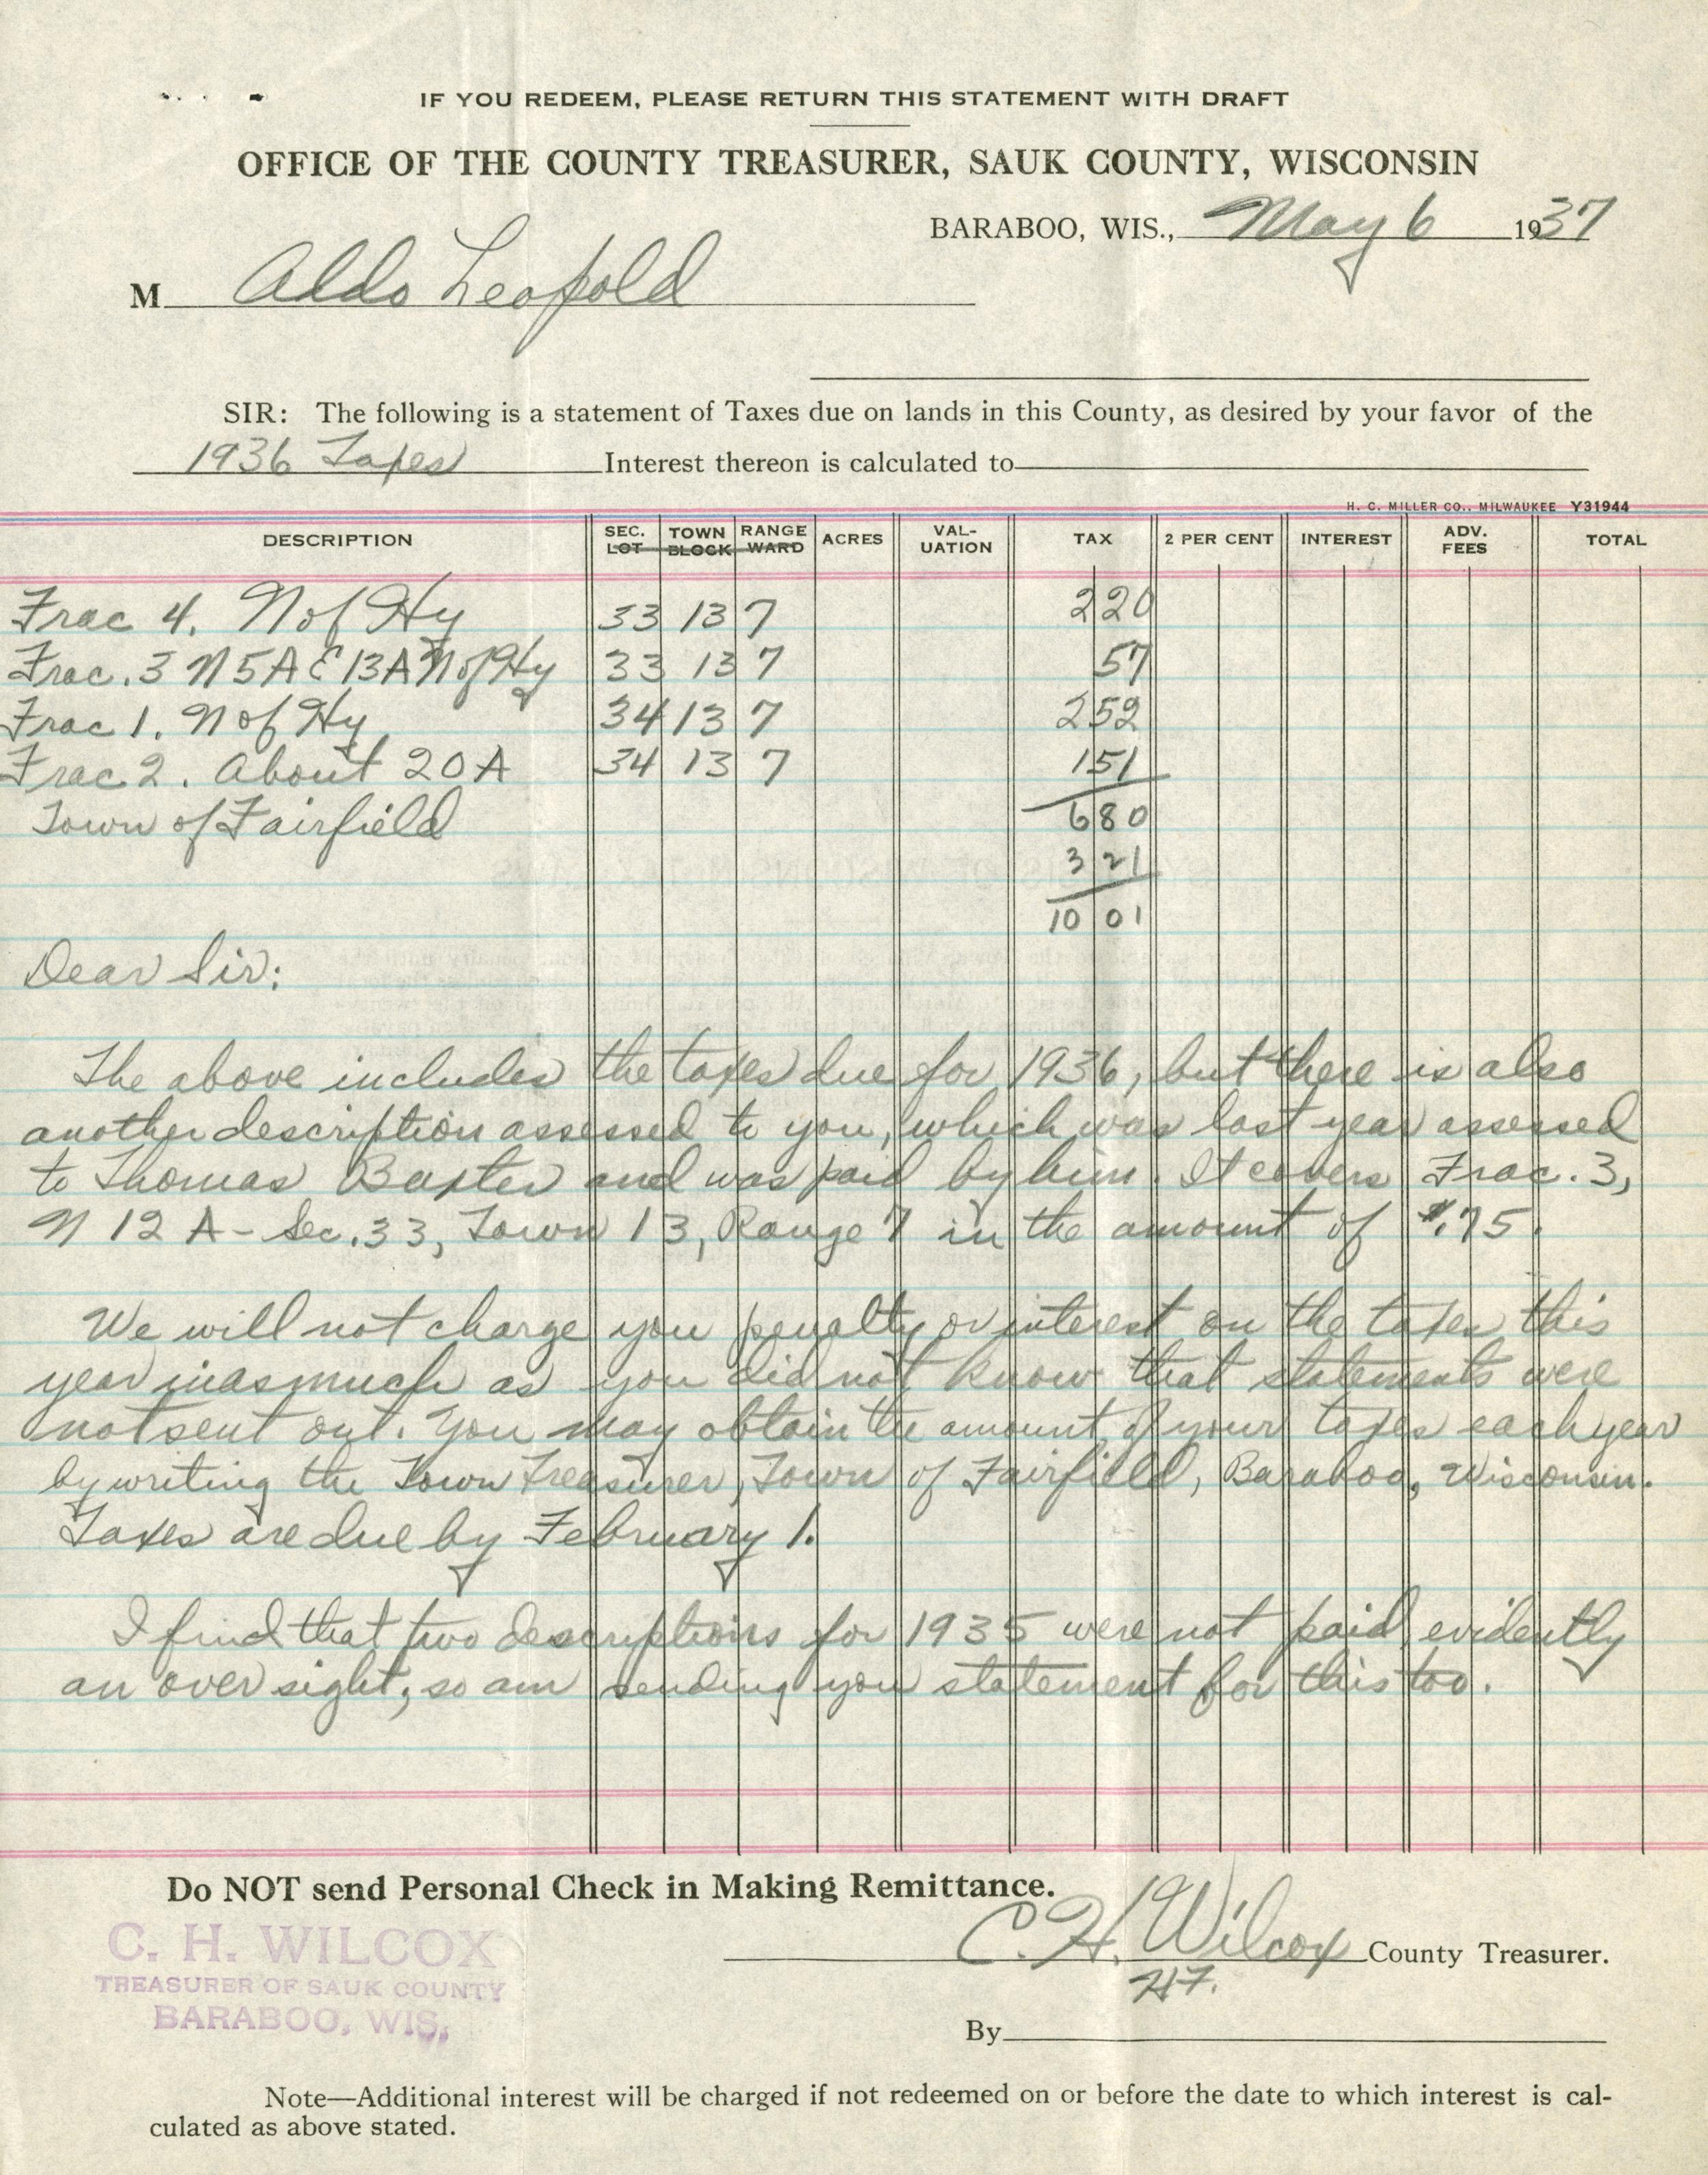 IF YOU REDEEM, PLEASE RETURN THIS STATEMENT WITH DRAFT
OFFICE OF THE COUNTY TREASURER, SAUK COUNTY, WISCONSIN
BARABOO, WIS., May 6 1937
M Aldo Leopold
SIR: The following is a statement of Taxes due on lands in this County, as desired by your favor of the
1936 Taxes Interest thereon is calculated to
H. C. MILLER CO., MILWAUKEE Y31944
DESCRIPTION SEC. LOT TOWN BLOCK RANGE WARD ACRES VAL-UATION TAX 2 PER CENT INTEREST ADV. FEES TOTAL
Frac 4. N of Hy 33 13 7 2 20
Frac. 3 N 5A E 13A N of Hy 33 13 7 57
Frac 1. N of Hy 34 13 7 2 52
Frac 2. About 20 A 34 13 7 1 51
Town of Fairfield 6 80
3 21
10 01
Dear Sir:
The above includes the taxes due for 1936, but there is also
another description assessed to you, which was last year assessed
to Thomas Baxter and was paid by him. It covers Frac. 3,
N 12 A - Sec. 33, Town 13, Range 7 in the amount of $.75.
We will not charge you penalty or interest on the taxes this
year inasmuch as you did not know that statements were
not sent out. You may obtain the amount of your taxes each year
by writing the Town Treasurer, Town of Fairfield, Baraboo, Wisconsin.
Taxes are due by February 1.
I find that two descriptions for 1935 were not paid, evidently
an over sight, so am sending you statement for this too.
Do NOT send Personal Check in Making Remittance.
C. H. WILCOX
TREASURER OF SAUK COUNTY
BARABOO, WIS.
C. H. Wilcox County Treasurer.
HF.
By
Note—Additional interest will be charged if not redeemed on or before the date to which interest is cal-
culated as above stated.